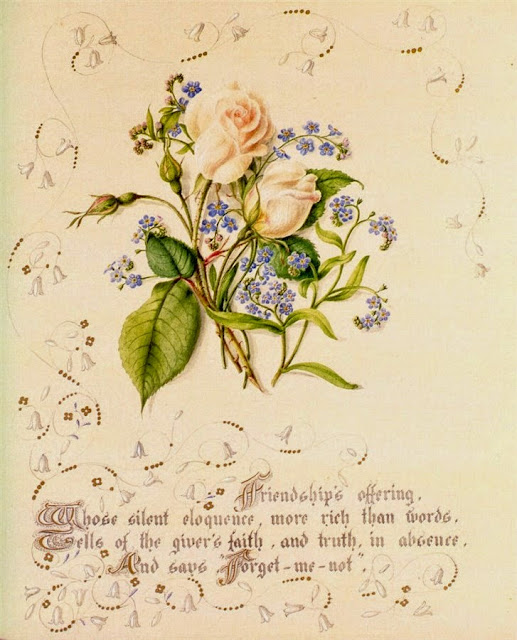 Friendship's offering,
Whose silent eloquence, more rich than words,
Tells of the giver's faith, and truth, in absence,
And says "Forget-me-not"